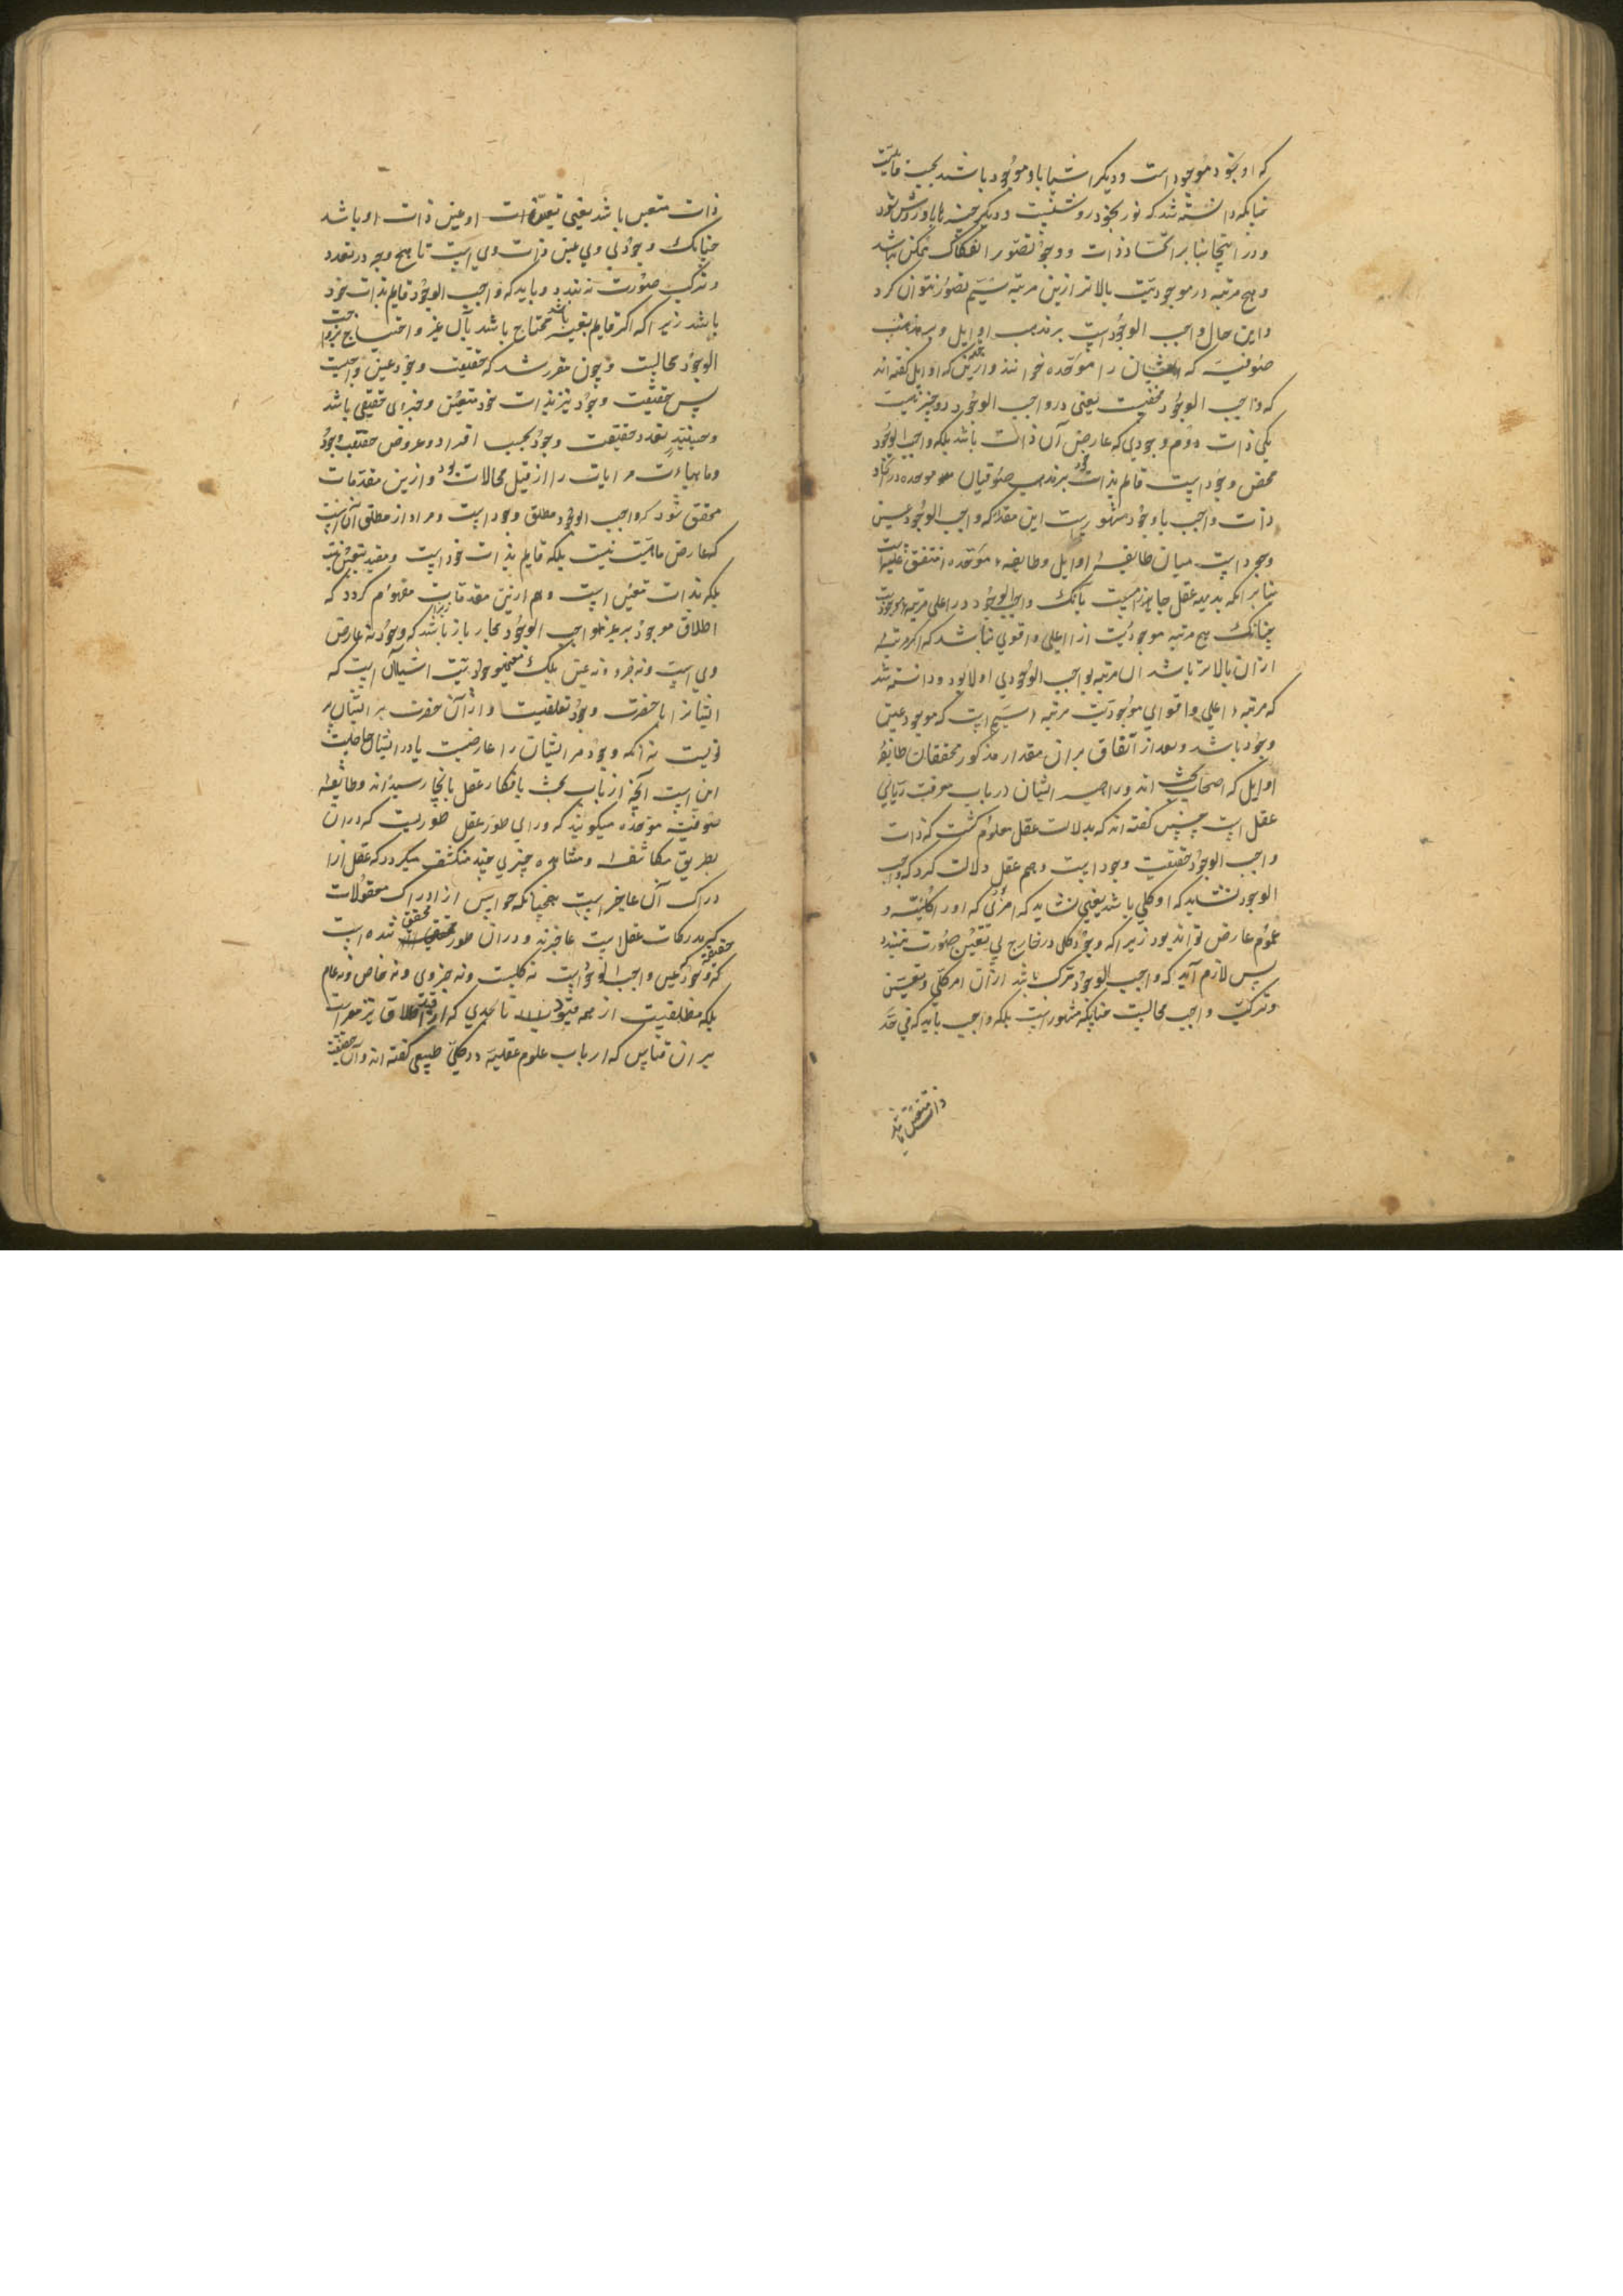 که او بخود موجود است و دیگر اشیا باو موجود باشند بحسب قابلیت
چنانکه دانسته شد که نور بخود روشنیست و دیگر چیزها باو روشن شود
و در اینجا بنابر اتحاد ذات و وجود تصور انفکاک ممکن نباشد
و هیچ مرتبه در موجودیت بالاتر ازین مرتبه سیم تصور نتوان کرد
و این حال واجب الوجود است بر مذهب اوایل و بر مذهب
صوفیه که ایشان را موحده خوانند و ازینست که اوایل گفته اند
که واجب الوجود محضیت یعنی در واجب الوجود دو چیز نیست
یکی ذات دوم وجودی که عارض آن ذات باشد بلکه واجب الوجود
محض وجود است قایم بذات خود بر مذهب صوفیان موحده در اتحاد
ذات واجب با وجود مشهور است این مقدار که واجب الوجود عین
وجود است میان طایفهٔ اوایل و طایفهٔ موحده متفق علیه است
بنابر آنکه بدیهه عقل جازم است بآنک واجب الوجود در اعلی مرتبهٔ موجودیت
چنانک هیچ مرتبه موجودیت از او اعلی و اقوی نباشد که اگر مرتبه
از آن بالاتر باشد آن مرتبه بواجب الوجودی اولا بود و دانسته شد
که مرتبه اعلی و اقوای موجودیت مرتبه سیم است که موجود عین
وجود باشد و بعد از اتفاق بر آن مقدار مذکور محققان طایفهٔ
اوایل که اصحاب بحث اند و راهبر ایشان در باب معرفت ربانی
عقل است چنین گفته اند که بدلالت عقل معلوم گشت که ذات
واجب الوجود حقیقت وجود است و هم عقل دلالت کرد که واجب
الوجود نشاید که او کلی باشد یعنی نشاید که امری که او را کلیت و
عموم عارض تواند بود زیرا که وجود کلی در خارج بی تعین صورت نبندد
پس لازم آید که واجب الوجود مرکب باشد از آن امر کلی و تعین
و ترکیب واجب محالست چنانکه مشهور است بلکه واجب باید که فی حد
ذات متعین باشد
ذات متعین باشد یعنی تعین ذات او عین ذات او باشد
چنانک وجود وی عین ذات وی است تا بهیچ وجه در تعدد
و ترکیب صورت نبندد و باید که واجب الوجود قایم بذات خود
باشد زیرا که اگر قایم بغیر باشد محتاج باشد بآن غیر و احتیاج بر واجب
الوجود محالست و چون مقرر شد که حقیقت وجود عین واجبست
پس حقیقت وجود نیز بذات خود متعین و جزوی حقیقی باشد
و حینئذ تعدد حقیقت وجود بحسب افراد و عروض حقیقت وجود
و ماهیات را از قبیل محالات بود و ازین مقدمات
محقق شود که واجب الوجود مطلق وجود است و مراد از مطلق آن است
که عارض ماهیت نیست بلکه قایم بذات خود است و مقید بتعین نیست
بلکه بذات متعین است و هم ازین مقدمات مفهوم گردد که
اطلاق موجود بر غیر واجب الوجود مجاز باشد زیرا که وجود نه عارض
وی است و نه جزو و نه عین بلکه معنی موجودیت اشیا آن است که
ایشانرا با حضرت وجود تعلقیست و از آن حضرت بر ایشان پر
تویست نه آنکه وجود مر ایشان را عارضیت یا در ایشان حاصلیت
این است آنچه ارباب بحث بافکار عقل بآنجا رسیده اند و طایفهٔ
صوفیه موحده میگویند که ورای طور عقل طوریست که در آن
بطریق مکاشفه و مشاهده چیزی چند منکشف میگردد که عقل از
ادراک آن عاجز است همچنانکه حواس از ادراک معقولات
که مدرکات عقل است عاجزند و در آن طور محقق شده است
که حقیقت وجود که عین واجب الوجود است نه کلیست و نه جزوی و نه خاص و نه عام
بلکه مطلقیست از همه قیود تا بحدی که از قید اطلاق نیز معراست
بر آن قیاس که ارباب علوم عقلیه در کلی طبیعی گفته اند و آن حقیقت